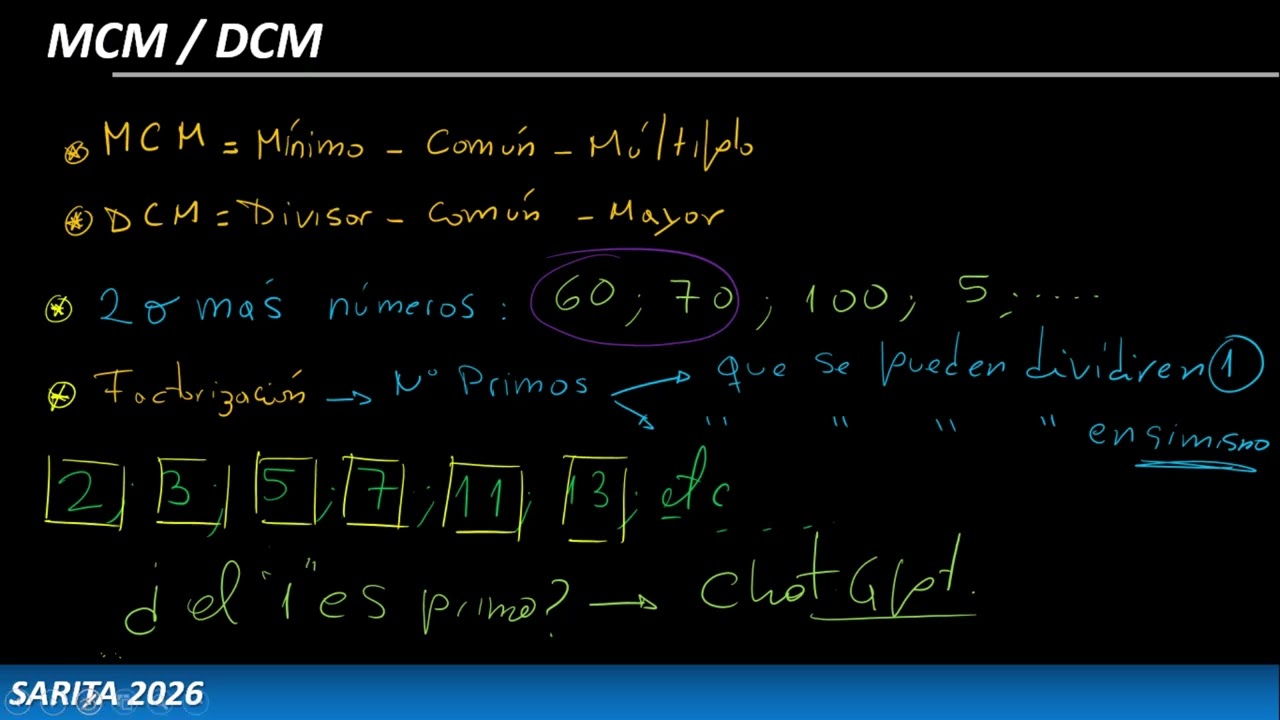 MCM / DCM
MCM = Mínimo - Común - Múltiplo
DCM = Divisor - Común - Mayor
2 o más números : 60 ; 70 ; 100 ; 5 ; .....
Factorización → Nº Primos → que se pueden dividir en 1
" " " " en simismo
2 ; 3 ; 5 ; 7 ; 11 ; 13 ; etc
¿ el "1" es primo? → chatGpt.
SARITA 2026